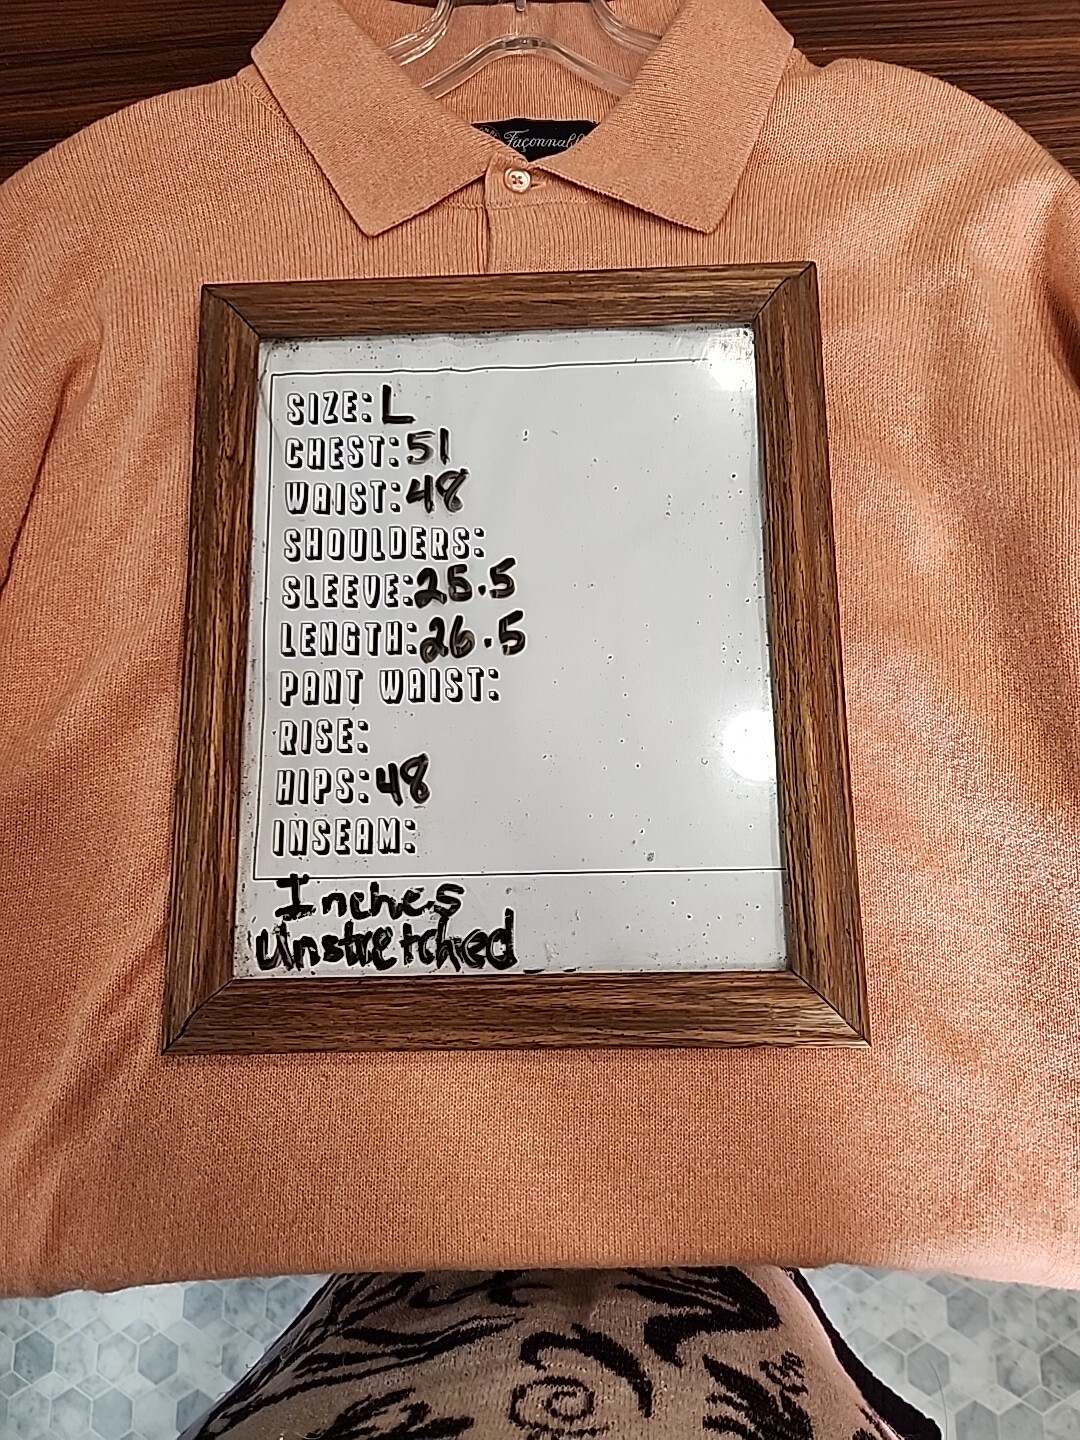 Façonnabl
SIZE: L
CHEST: 51
WAIST: 48
SHOULDERS:
SLEEVE: 25.5
LENGTH: 26.5
PANT WAIST:
RISE:
HIPS: 48
INSEAM:
Inches
Unstretched